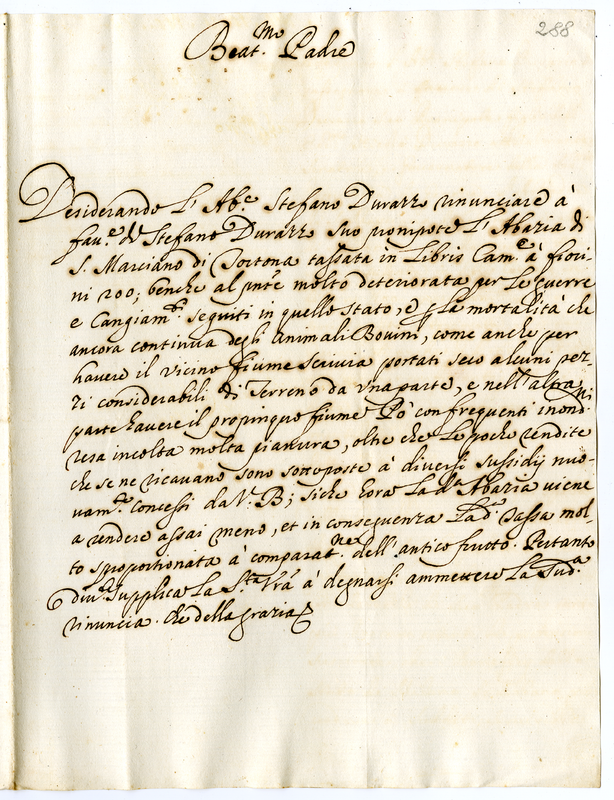 288
Beat.mo Padre
Desiderando L'Ab.e Stefano Durazzo rinunciare à
fau.e di Stefano Durazzo suo pronipote L'Abazia di
S. Marciano di Tortona tassata in Libris Cam.e à fiori-
ni 200; benche al pnte molto deteriorata per Le guerre
e Cangiam.ti seguiti in quello stato, e p La mortalità che
ancora continua degli animali Bouini, come anche per
hauere il vicino fiume Scriuia portati seco alcuni pez-
zi considerabili di Terreno da vna parte, e nell'altra
parte hauere il propinquo fiume Pò con frequenti inond.ni
resa incolta molta pianura, oltre che Le poche rendite
che se ne ricauano sono sottoposte à diuersi sussidij nuo-
uam.te concessi da V.B; siche hora La d.a Abazia viene
a rendere assai meno, et in conseguenza La d. Tassa mol
to sproportionata à comparat.ne dell'antico frutto. Pertanto
diu.e supplica La S.ta Vra à degnarsi ammettere La Sud.a
rinuncia. Che della grazia